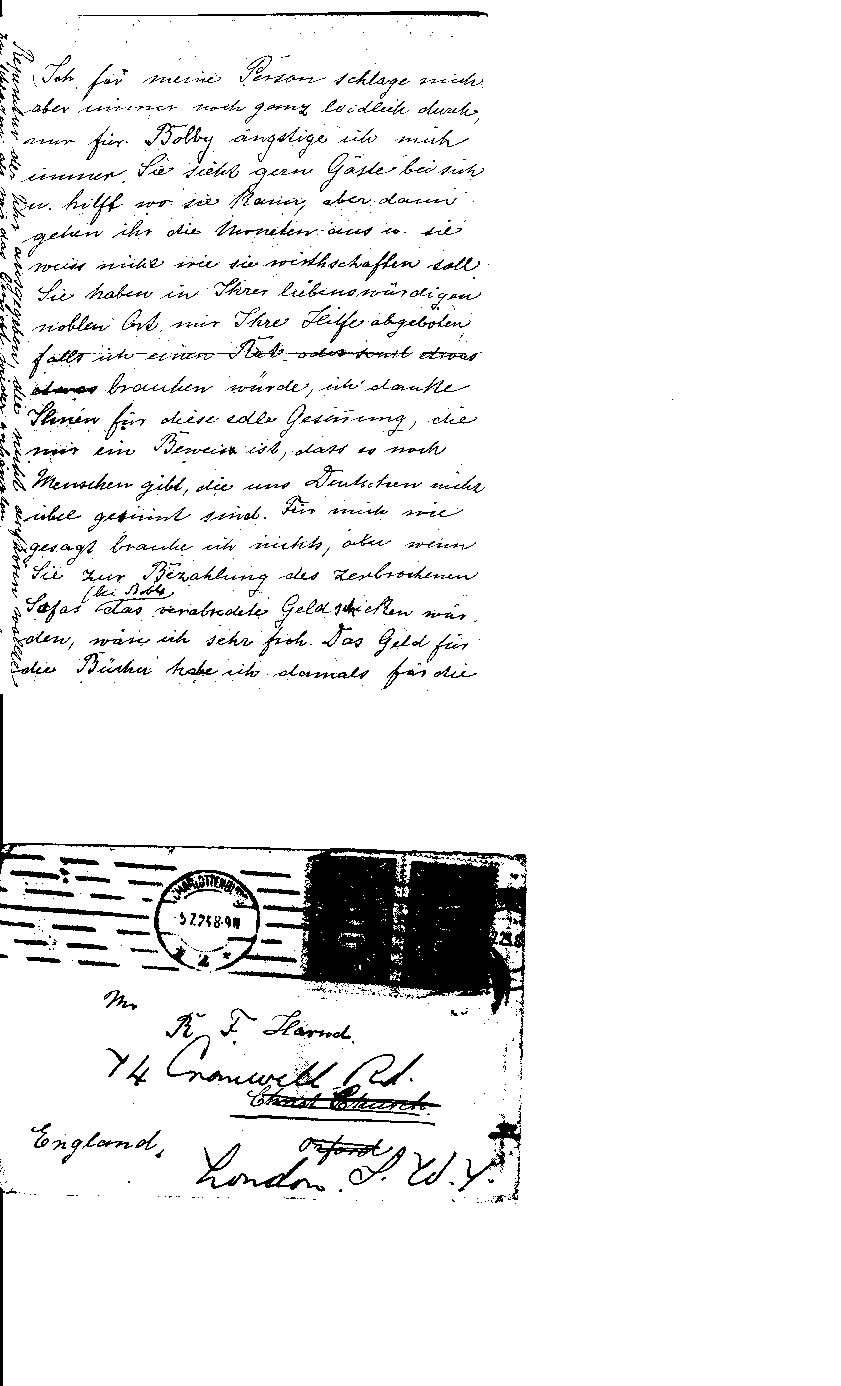 Ich für meine Person schlage mich
aber immer noch ganz leidlich durch,
nur für Bobby ängstige ich mich
immer. Sie sieht gern Gäste bei sich
u. hilft wo sie kann, aber dann
gehen ihr die Moneten aus u. sie
weiss nicht wie sie wirthschaften soll
Sie haben in Ihrer liebenswürdigen
noblen Art mir Ihre Hilfe abgeboten,
falls ich einen Rat oder sonst etwas
etwas brauchen würde, ich danke
Ihnen für diese edle Gesinnung, die
mir ein Beweis ist, dass es noch
Menschen gibt, die uns Deutschen nicht
übel gesinnt sind. Für mich wie
gesagt brauche ich nichts, aber wenn
Sie zur Bezahlung des zerbrochenen
(bei Bobby
Sofas das verabredete Geld schicken wür
den, wäre ich sehr froh. Das Geld für
die Bücher habe ich damals für die
Reparatur der Uhr ausgegeben, die nicht
CHARLOTTENBURG
5.7.23.8-9N
* 2 *
Mr
R. F. Harrod.
74 Cromwell Rd.
Christ Church
England,
Oxford
London. S. W. 7.